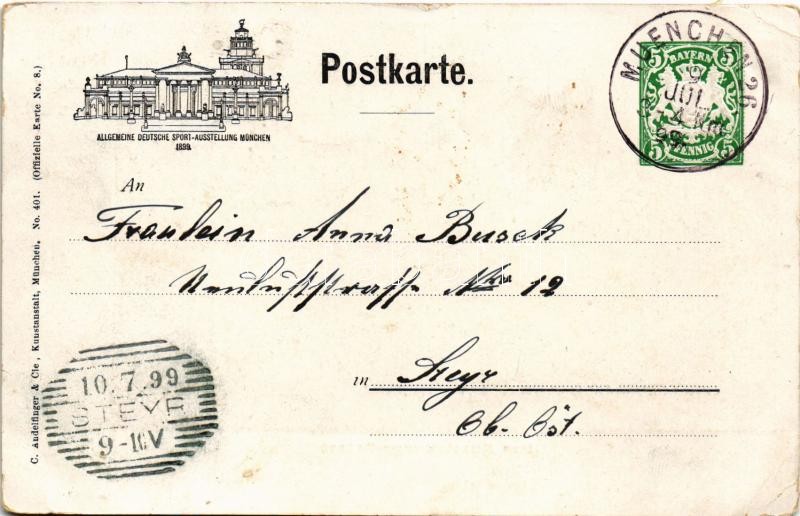 Postkarte.
ALLGEMEINE DEUTSCHE SPORT-AUSSTELLUNG MÜNCHEN
1899.
BAYERN
5 5
5 5
PFENNIG
MUENCHEN 26
9
JUL
99
C. Andelfinger & Cie, Kunstanstalt, München. No. 401. (Offizielle Karte No. 8.)
An
Fräulein Anna Busek
Neuluststrasse No 12
in Steyr
Ob. Öst.
10.7.99
STEYR
9-10V